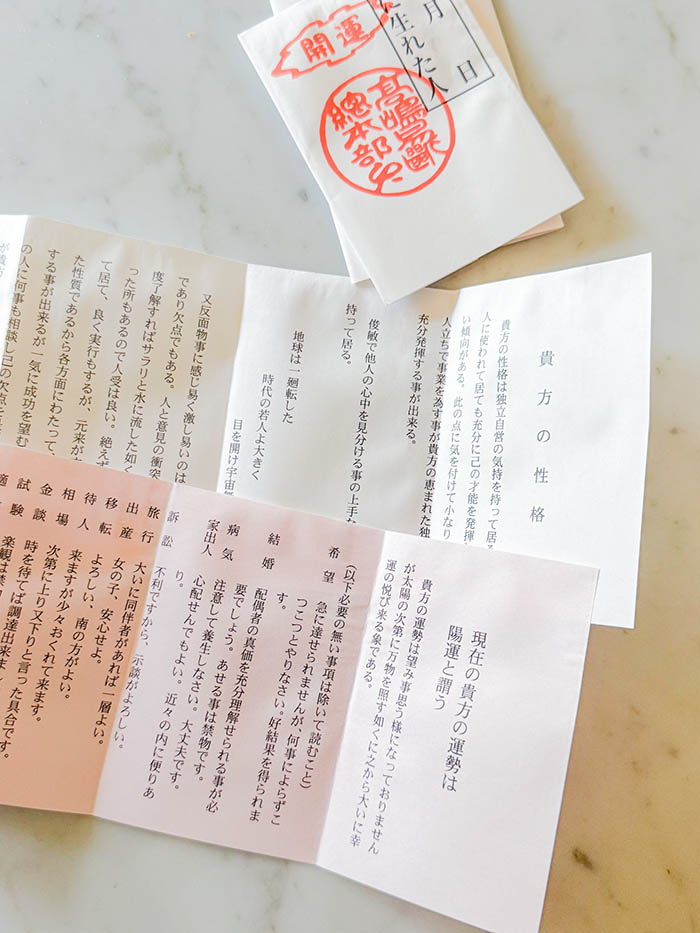 開運
高嶋易断
総本部
月 日
生れた人
貴方の性格
貴方の性格は独立自営の気持を持って居る
人に使われて居ても充分に己の才能を発揮
い傾向がある。此の点に気を付けて小なり
人立ちで事業を為す事が貴方の恵まれた独
充分発揮する事が出来る。
俊敏で他人の心中を見分ける事の上手な
持って居る。
地球は一廻転した
時代の若人よ大きく
目を開け宇宙
又反面物事に感じ易く激し易いのは
であり欠点でもある。人と意見の衝突
度了解すればサラリと水に流した如く
った所もあるので人受は良い。絶えず
て居て、良く実行もするが、元来が
た性質であるから各方面にわたって、
する事が出来るが一気に成功を望む
の人に何事も相談し己の欠点を
が貴方
現在の貴方の運勢は
陽運と謂う
貴方の運勢は望み事思う様になっておりません
が太陽の次第に万物を照す如くに之から大いに幸
運の悦び来る象である。
(以下必要の無い事項は除いて読むこと)
希望 急に達せられませんが、何事によらずこ
つこつとやりなさい。好結果を得られま
結婚 配偶者の真価を充分理解せられる事が必
要でしょう。あせる事は禁物です。
病気 注意して養生しなさい。大丈夫です。
家出人 心配せんでもよい。近々の内に便りあ
り。
訴訟 不利ですから、示談がよろしい。
旅行 大いに同伴者があれば一層よい。
出産 女の子、安心せよ。
移転 よろしい、南の方がよい。
待人 来ますが少々おくれて来ます。
相場 次第に上り又下りと言った具合です。
金談 時を待てば調達出来ま
試験 楽観は禁